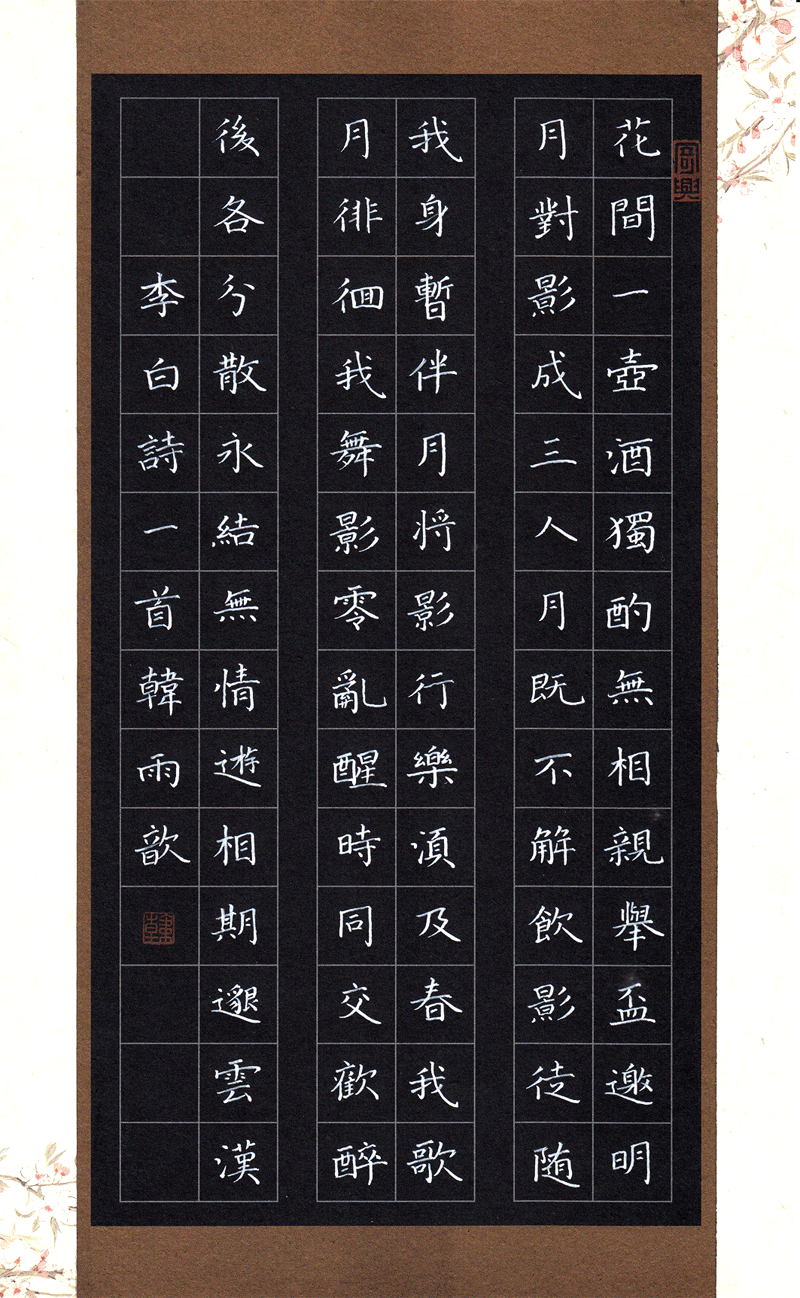 花間一壺酒獨酌無相親舉盃邀明
月對影成三人月既不解飲影徒随
我身暫伴月将影行樂須及春我歌
月徘徊我舞影零亂醒時同交歡醉
後各分散永結無情遊相期邈雲漢
李白詩一首韓雨歆